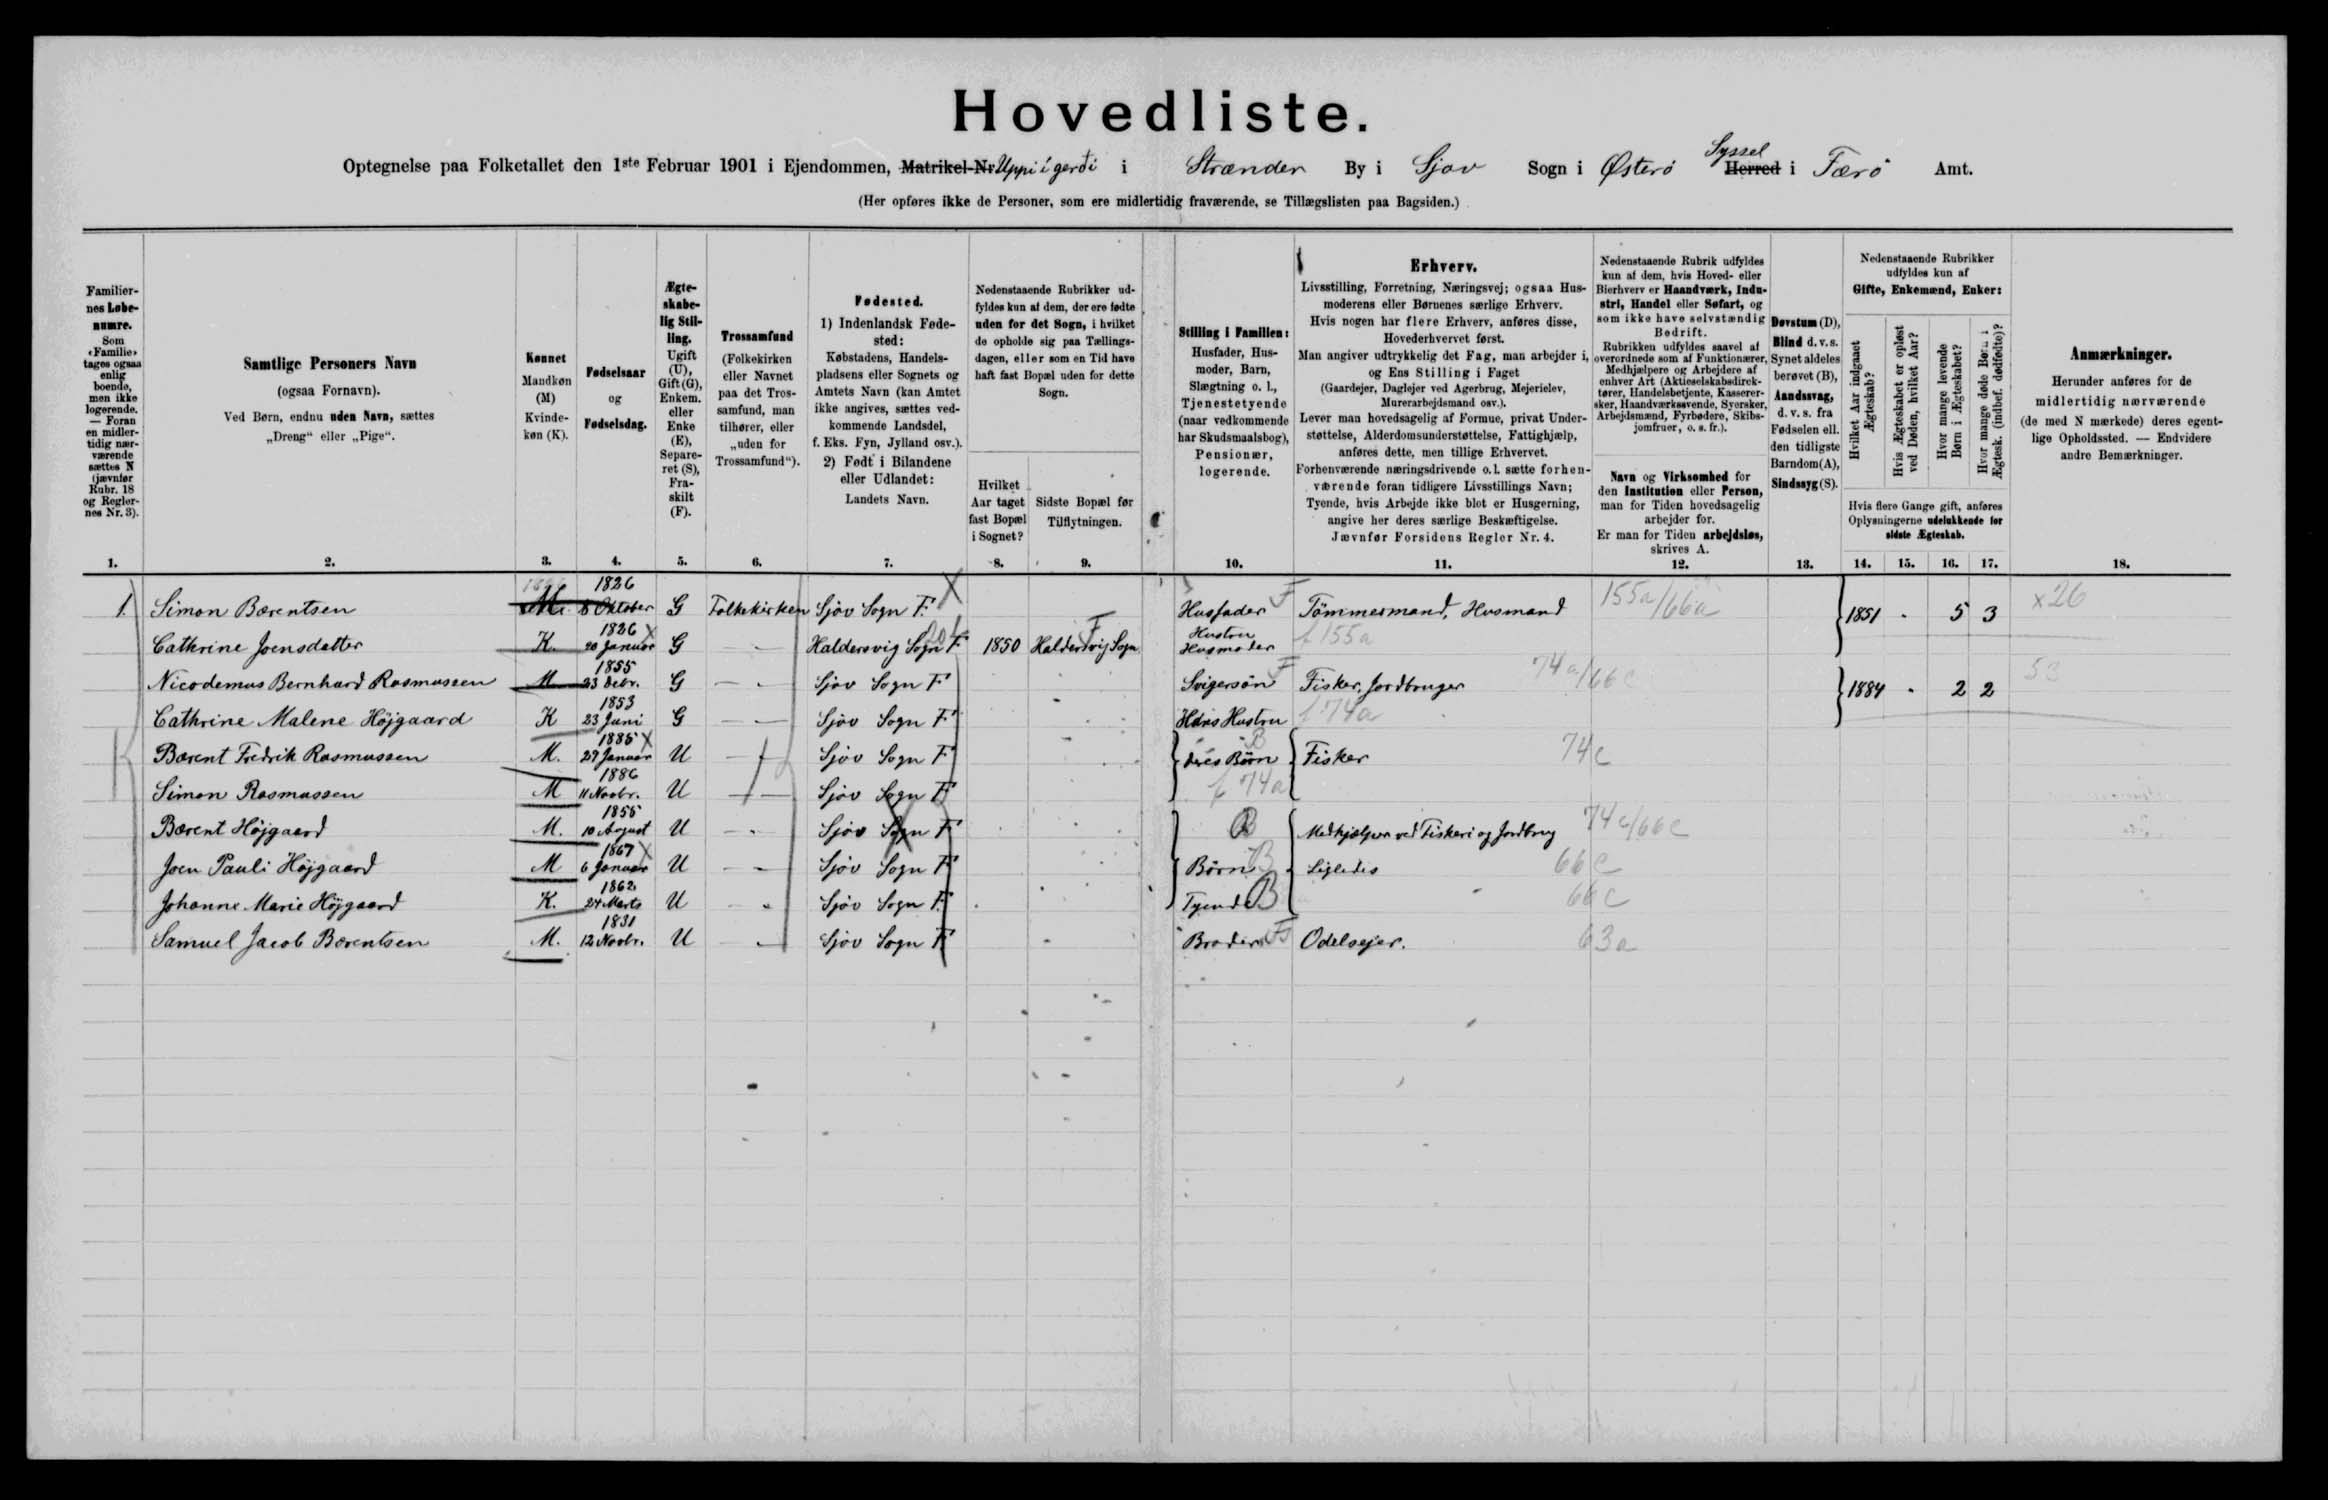 Hovedliste.
Optegnelse paa Folketallet den 1ste Februar 1901 i Ejendommen, Matrikel-Nr. Uppi i gerði i Strænder By i Sjov Sogn i Østerö Herred Syssel i Færö Amt.
(Her opføres ikke de Personer, som ere midlertidig fraværende, se Tillægslisten paa Bagsiden.)
Familiernes Løbenumre.
Som «Familie» tages ogsaa enlig boende, men ikke logerende. — Foran en midlertidig nærværende sættes N (jævnfør Rubr. 18 og Reglernes Nr. 3).
Samtlige Personers Navn
(ogsaa Fornavn).
Ved Børn, endnu uden Navn, sættes
„Dreng“ eller „Pige“.
Kønnet
Mandkøn (M)
Kvindekøn (K).
Fødselsaar
og
Fødselsdag.
Ægteskabelig Stilling.
Ugift (U), Gift (G), Enkem. eller Enke (E), Separeret (S), Fraskilt (F).
Trossamfund
(Folkekirken eller Navnet paa det Trossamfund, man tilhører, eller „uden for Trossamfund“).
Fødested.
1) Indenlandsk Fødested:
Købstadens, Handelspladsens eller Sognets og Amtets Navn (kan Amtet ikke angives, sættes vedkommende Landsdel, f. Eks. Fyn, Jylland osv.).
2) Født i Bilandene eller Udlandet:
Landets Navn.
Nedenstaaende Rubrikker udfyldes kun af dem, der ere fødte uden for det Sogn, i hvilket de opholde sig paa Tællingsdagen, eller som en Tid have haft fast Bopæl uden for dette Sogn.
Hvilket Aar taget fast Bopæl i Sognet?
Sidste Bopæl før Tilflytningen.
Stilling i Familien:
Husfader, Husmoder, Barn, Slægtning o. l., Tjenestetyende (naar vedkommende har Skudsmaalsbog), Pensionær, logerende.
Erhverv.
Livsstilling, Forretning, Næringsvej; ogsaa Husmoderens eller Børnenes særlige Erhverv.
Hvis nogen har flere Erhverv, anføres disse, Hovederhvervet først.
Man angiver udtrykkelig det Fag, man arbejder i, og Ens Stilling i Faget
(Gaardejer, Daglejer ved Agerbrug, Mejerielev, Murerarbejdsmand osv.).
Lever man hovedsagelig af Formue, privat Understøttelse, Alderdomsunderstøttelse, Fattighjælp, anføres dette, men tillige Erhvervet.
Forhenværende næringsdrivende o. l. sætte forhenværende foran tidligere Livsstillings Navn;
Tyende, hvis Arbejde ikke blot er Husgerning, angive her deres særlige Beskæftigelse.
Jævnfør Forsidens Regler Nr. 4.
Nedenstaaende Rubrik udfyldes kun af dem, hvis Hoved- eller Bierhverv er Haandværk, Industri, Handel eller Søfart, og som ikke have selvstændig Bedrift.
Rubrikken udfyldes saavel af overordnede som af Funktionærer, Medhjælpere og Arbejdere af enhver Art (Aktieselskabsdirektører, Handelsbetjente, Kasserersker, Haandværkssvende, Syersker, Arbejdsmænd, Fyrbødere, Skibsjomfruer, o. s. fr.).
Navn og Virksomhed for den Institution eller Person, man for Tiden hovedsagelig arbejder for.
Er man for Tiden arbejdsløs, skrives A.
Døvstum (D), Blind d. v. s. Synet aldeles berøvet (B), Aandssvag, d. v. s. fra Fødselen ell. den tidligste Barndom (A), Sindssyg (S).
Nedenstaaende Rubrikker udfyldes kun af Gifte, Enkemænd, Enker:
Hvilket Aar indgaaet Ægteskab?
Hvis Ægteskabet er opløst ved Døden, hvilket Aar?
Hvor mange levende Børn i Ægteskabet?
Hvor mange døde Børn i Ægtesk. (indbef. dødfødte)?
Hvis flere Gange gift, anføres Oplysningerne udelukkende for sidste Ægteskab.
Anmærkninger.
Herunder anføres for de midlertidig nærværende (de med N mærkede) deres egentlige Opholdssted. — Endvidere andre Bemærkninger.
1. 2. 3. 4. 5. 6. 7. 8. 9. 10. 11. 12. 13. 14. 15. 16. 17. 18.
1. Simon Bærentsen M. 1826 8 Oktober G Folkekirken Sjóv Sogn F. Husfader F Tömmermand, Husmand 155a/66a 1851 - 5 3 x26
Cathrine Joensdatter K. 1826 20 Januar G — Haldersvig Sogn F 1850 Haldersvig Sogn F Hustru Husmoder f 155a
Nicodemus Bernhard Rasmussen M 1855 23 Debr. G — Sjóv Sogn F Svigersön F Fisker, Jordbruger 74a/66c 1884 - 2 2 53
Cathrine Malene Höjgaard K 1853 23 Juni G — Sjóv Sogn F Hans Hustru f 74a
Bærent Fredrik Rasmussen M. 1885 29 Januar U — Sjóv Sogn F deres Börn B Fisker 74c
Simon Rasmussen M 1886 11 Novbr. U — Sjóv Sogn F f 74a
Bærent Höjgaard M. 1855 10 August U — Sjóv Sogn F B Medhjælper ved Fiskeri og Jordbrug 74c/66c
Joen Pauli Höjgaard M 1867 6 Januar U — Sjóv Sogn F Börn B Ligledes 66c
Johanne Marie Höjgaard K. 1862 24 Marts U — Sjóv Sogn F. Tyende B 66c
Samuel Jacob Bærentsen M. 1831 12 Novbr. U — Sjóv Sogn F Broder Fs Odelsejer. 63a